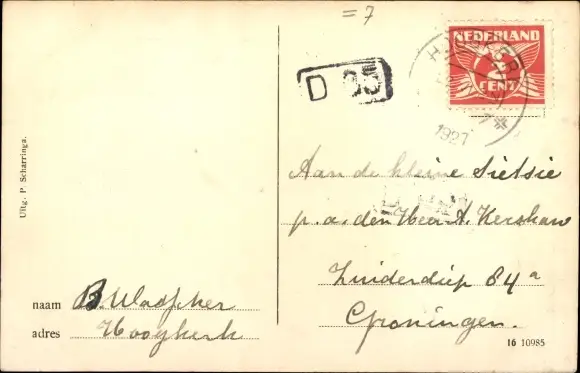 = 7
D 35
NEDERLAND
2
CENT
1927
Aan de kleine Sietsie
p. a. den Heer A. Kershaw
Zuiderdiep 84a
Groningen.
Uitg. P. Scharringa.
naam B. Wadfker
adres Hoogkerk
16 10985